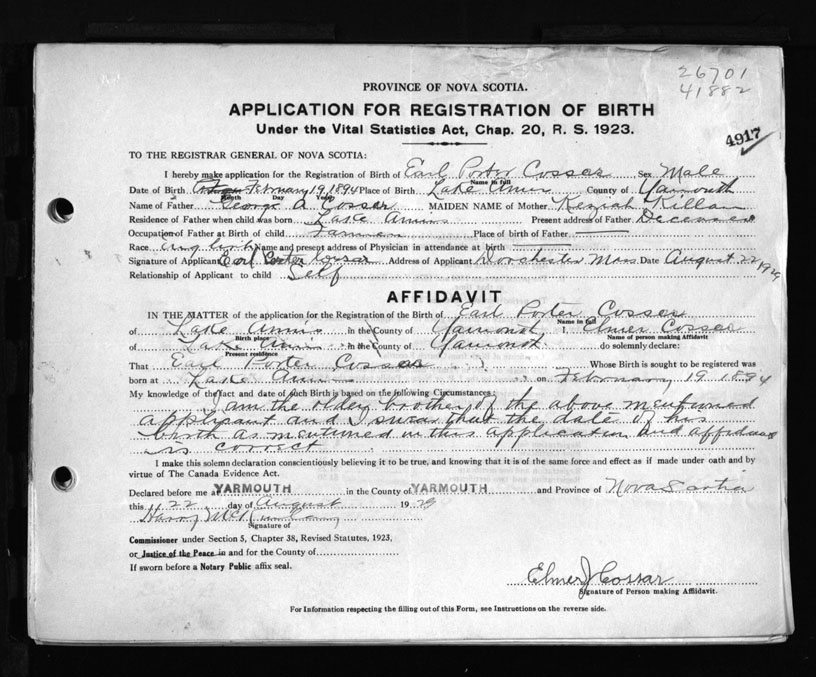 26701
41882
PROVINCE OF NOVA SCOTIA.
APPLICATION FOR REGISTRATION OF BIRTH
Under the Vital Statistics Act, Chap. 20, R. S. 1923.
4917
TO THE REGISTRAR GENERAL OF NOVA SCOTIA:
I hereby make application for the Registration of Birth of Earl Porter Cossar Sex Male
Name in full
Date of Birth February 19, 1894 Place of Birth Lake Annis County of Yarmouth
Month Day Year
Name of Father George A Cossar MAIDEN NAME of Mother Keziah Killam
Residence of Father when child was born Lake Annis Present address of Father Deceased
Occupation of Father at Birth of child Farmer Place of birth of Father
Race English Name and present address of Physician in attendance at birth
Signature of Applicant Earl Porter Cossar Address of Applicant Dorchester Mass Date August 22 1929
Relationship of Applicant to child Self
AFFIDAVIT
IN THE MATTER of the application for the Registration of the Birth of Earl Porter Cosser
Name in full
of Lake Annis in the County of Yarmouth, I, Elmer Cosser
Birth place Name of person making Affidavit
of Lake Annis in the County of Yarmouth do solemnly declare:
Present residence
That Earl Porter Cossar Whose Birth is sought to be registered was
born at Lake Annis on February 19 1894
My knowledge of the fact and date of such Birth is based on the following Circumstances:
I am the older brother of the above mentioned
applicant and I swear that the date of his
birth as mentioned in this application and affidavit
is correct
I make this solemn declaration conscientiously believing it to be true, and knowing that it is of the same force and effect as if made under oath and by
virtue of The Canada Evidence Act.
Declared before me at YARMOUTH in the County of YARMOUTH and Province of Nova Scotia
this 22 day of August 1929
Harry
Signature of
Commissioner under Section 5, Chapter 38, Revised Statutes, 1923,
or Justice of the Peace in and for the County of
If sworn before a Notary Public affix seal.
Elmer J Cossar
Signature of Person making Affidavit.
For Information respecting the filling out of this Form, see Instructions on the reverse side.